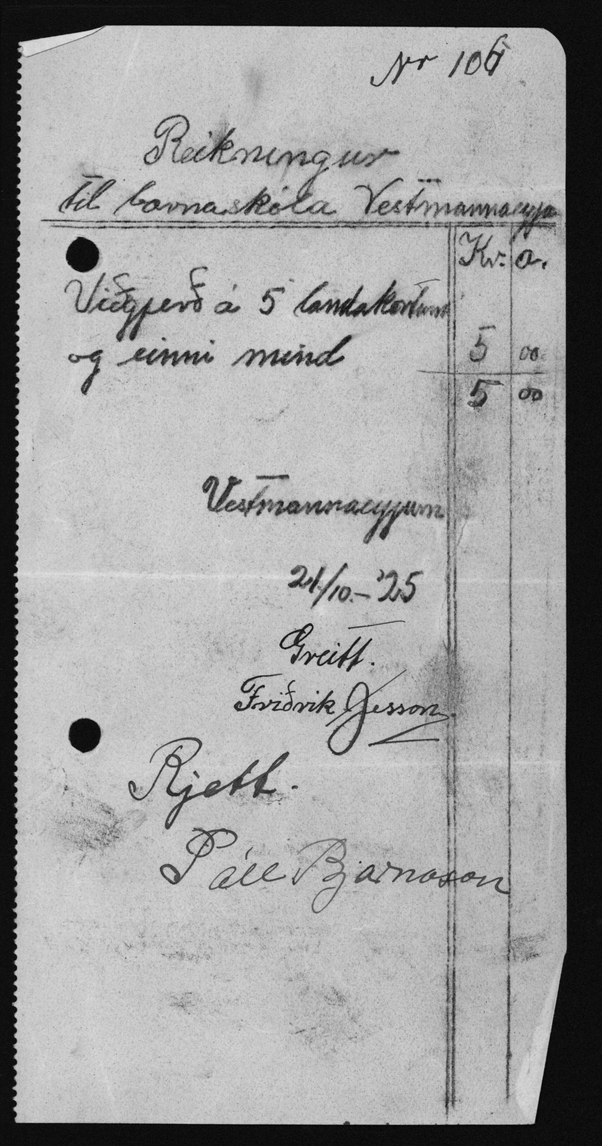 Nr 106
Reikningur
til barnaskóla Vestmannaeyja
Kr: a.
Viðgjerð á 5 landakortum
og einni mind 5 00
5 00
Vestmannaeyjum
21/10.-'25
Greitt.
Friðrik Jesson.
Rjett.
Páll Bjarnason